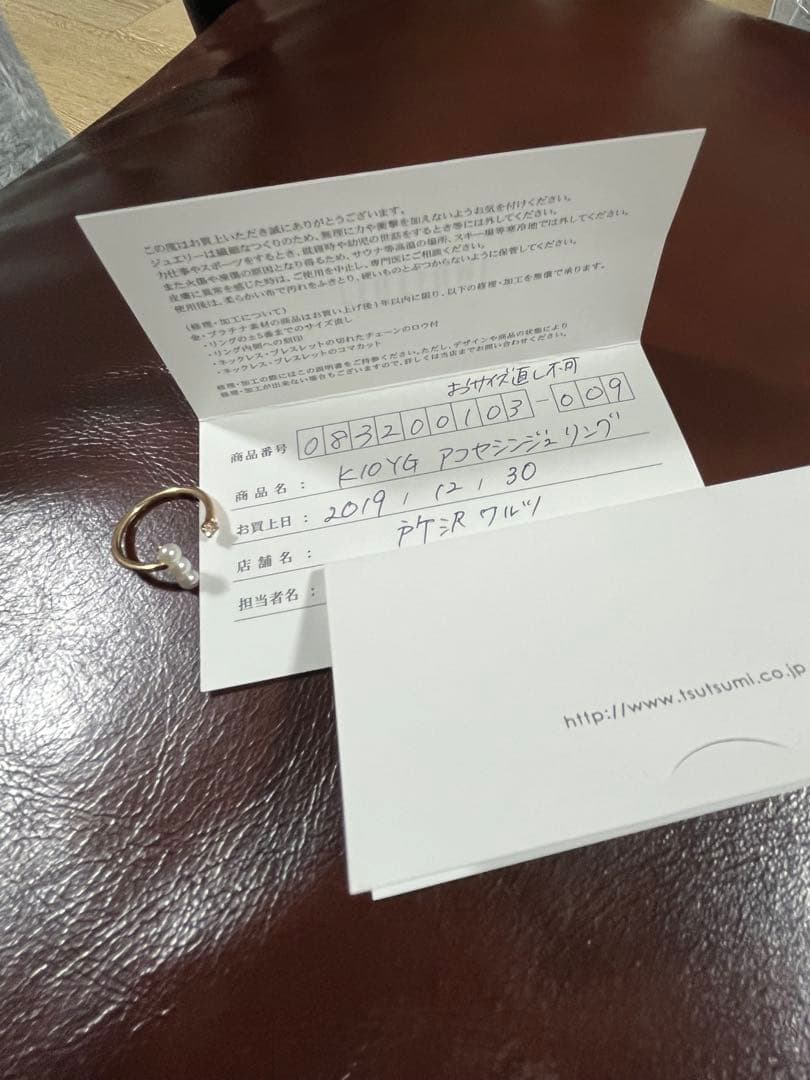 この度はお買上いただき誠にありがとうございます。
ジュエリーは繊細なつくりのため、無理に力や衝撃を加えないようお気を付けください。
力仕事やスポーツをするとき、就寝時や幼児の世話をするとき等には外してください。
また火傷や凍傷の原因となり得るため、サウナ等高温の場所、スキー場等寒冷地では外してください。
皮膚に異常を感じた時は、ご使用を中止し、専門医にご相談ください。
使用後は、柔らかい布で汚れをふきとり、硬いものとぶつからないように保管してください。
〈修理・加工について〉
金・プラチナ素材の商品はお買い上げ後1年以内に限り、以下の修理・加工を無償で承ります。
・リングの±5番までのサイズ直し
・リング内側への刻印
・ネックレス・ブレスレットの切れたチェーンのロウ付
・ネックレス・ブレスレットのコマカット
修理・加工の際にはこの説明書をご持参ください。ただし、デザインや商品の状態により
修理・加工が出来ない場合もございますので、詳しくは当店までお問い合わせください。
おサイズ直し不可
商品番号 083200103-009
商品名： K10YG アコヤシンジュ リング
お買上日： 2019, 12, 30
店舗名： 戸ケ沢 ワルツ
担当者名：
http://www.tsutsumi.co.jp